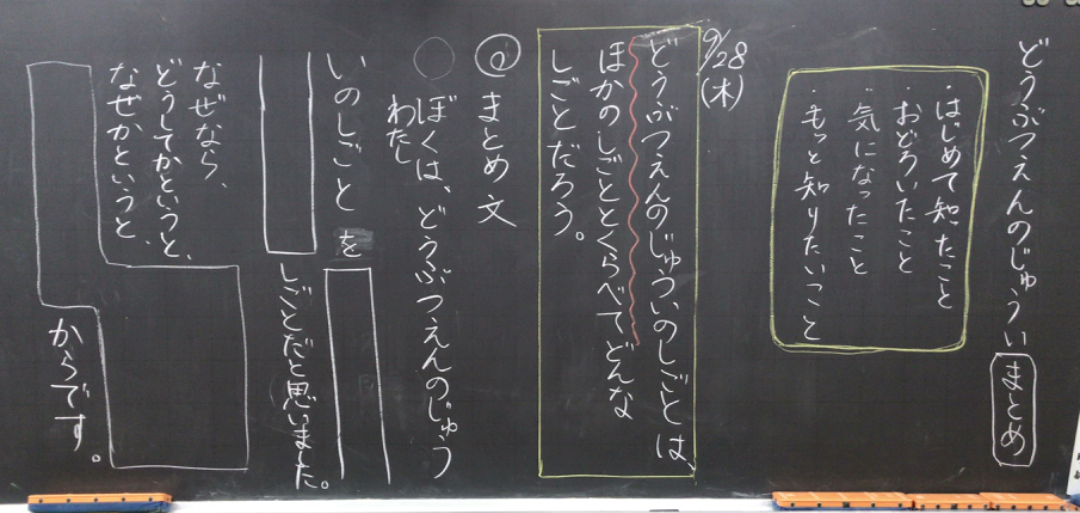 どうぶつえんのじゅうい まとめ
・はじめて知ったこと
・おどろいたこと
・気になったこと
・もっと知りたいこと
9/28
(木)
どうぶつえんのじゅういのしごとは、
ほかのしごととくらべてどんな
しごとだろう。
@まとめ文
ぼくは、どうぶつえんのじゅう
わたし
いのしごとを
しごとだと思いました。
なぜなら、
どうしてかというと、
なぜかというと、
からです。